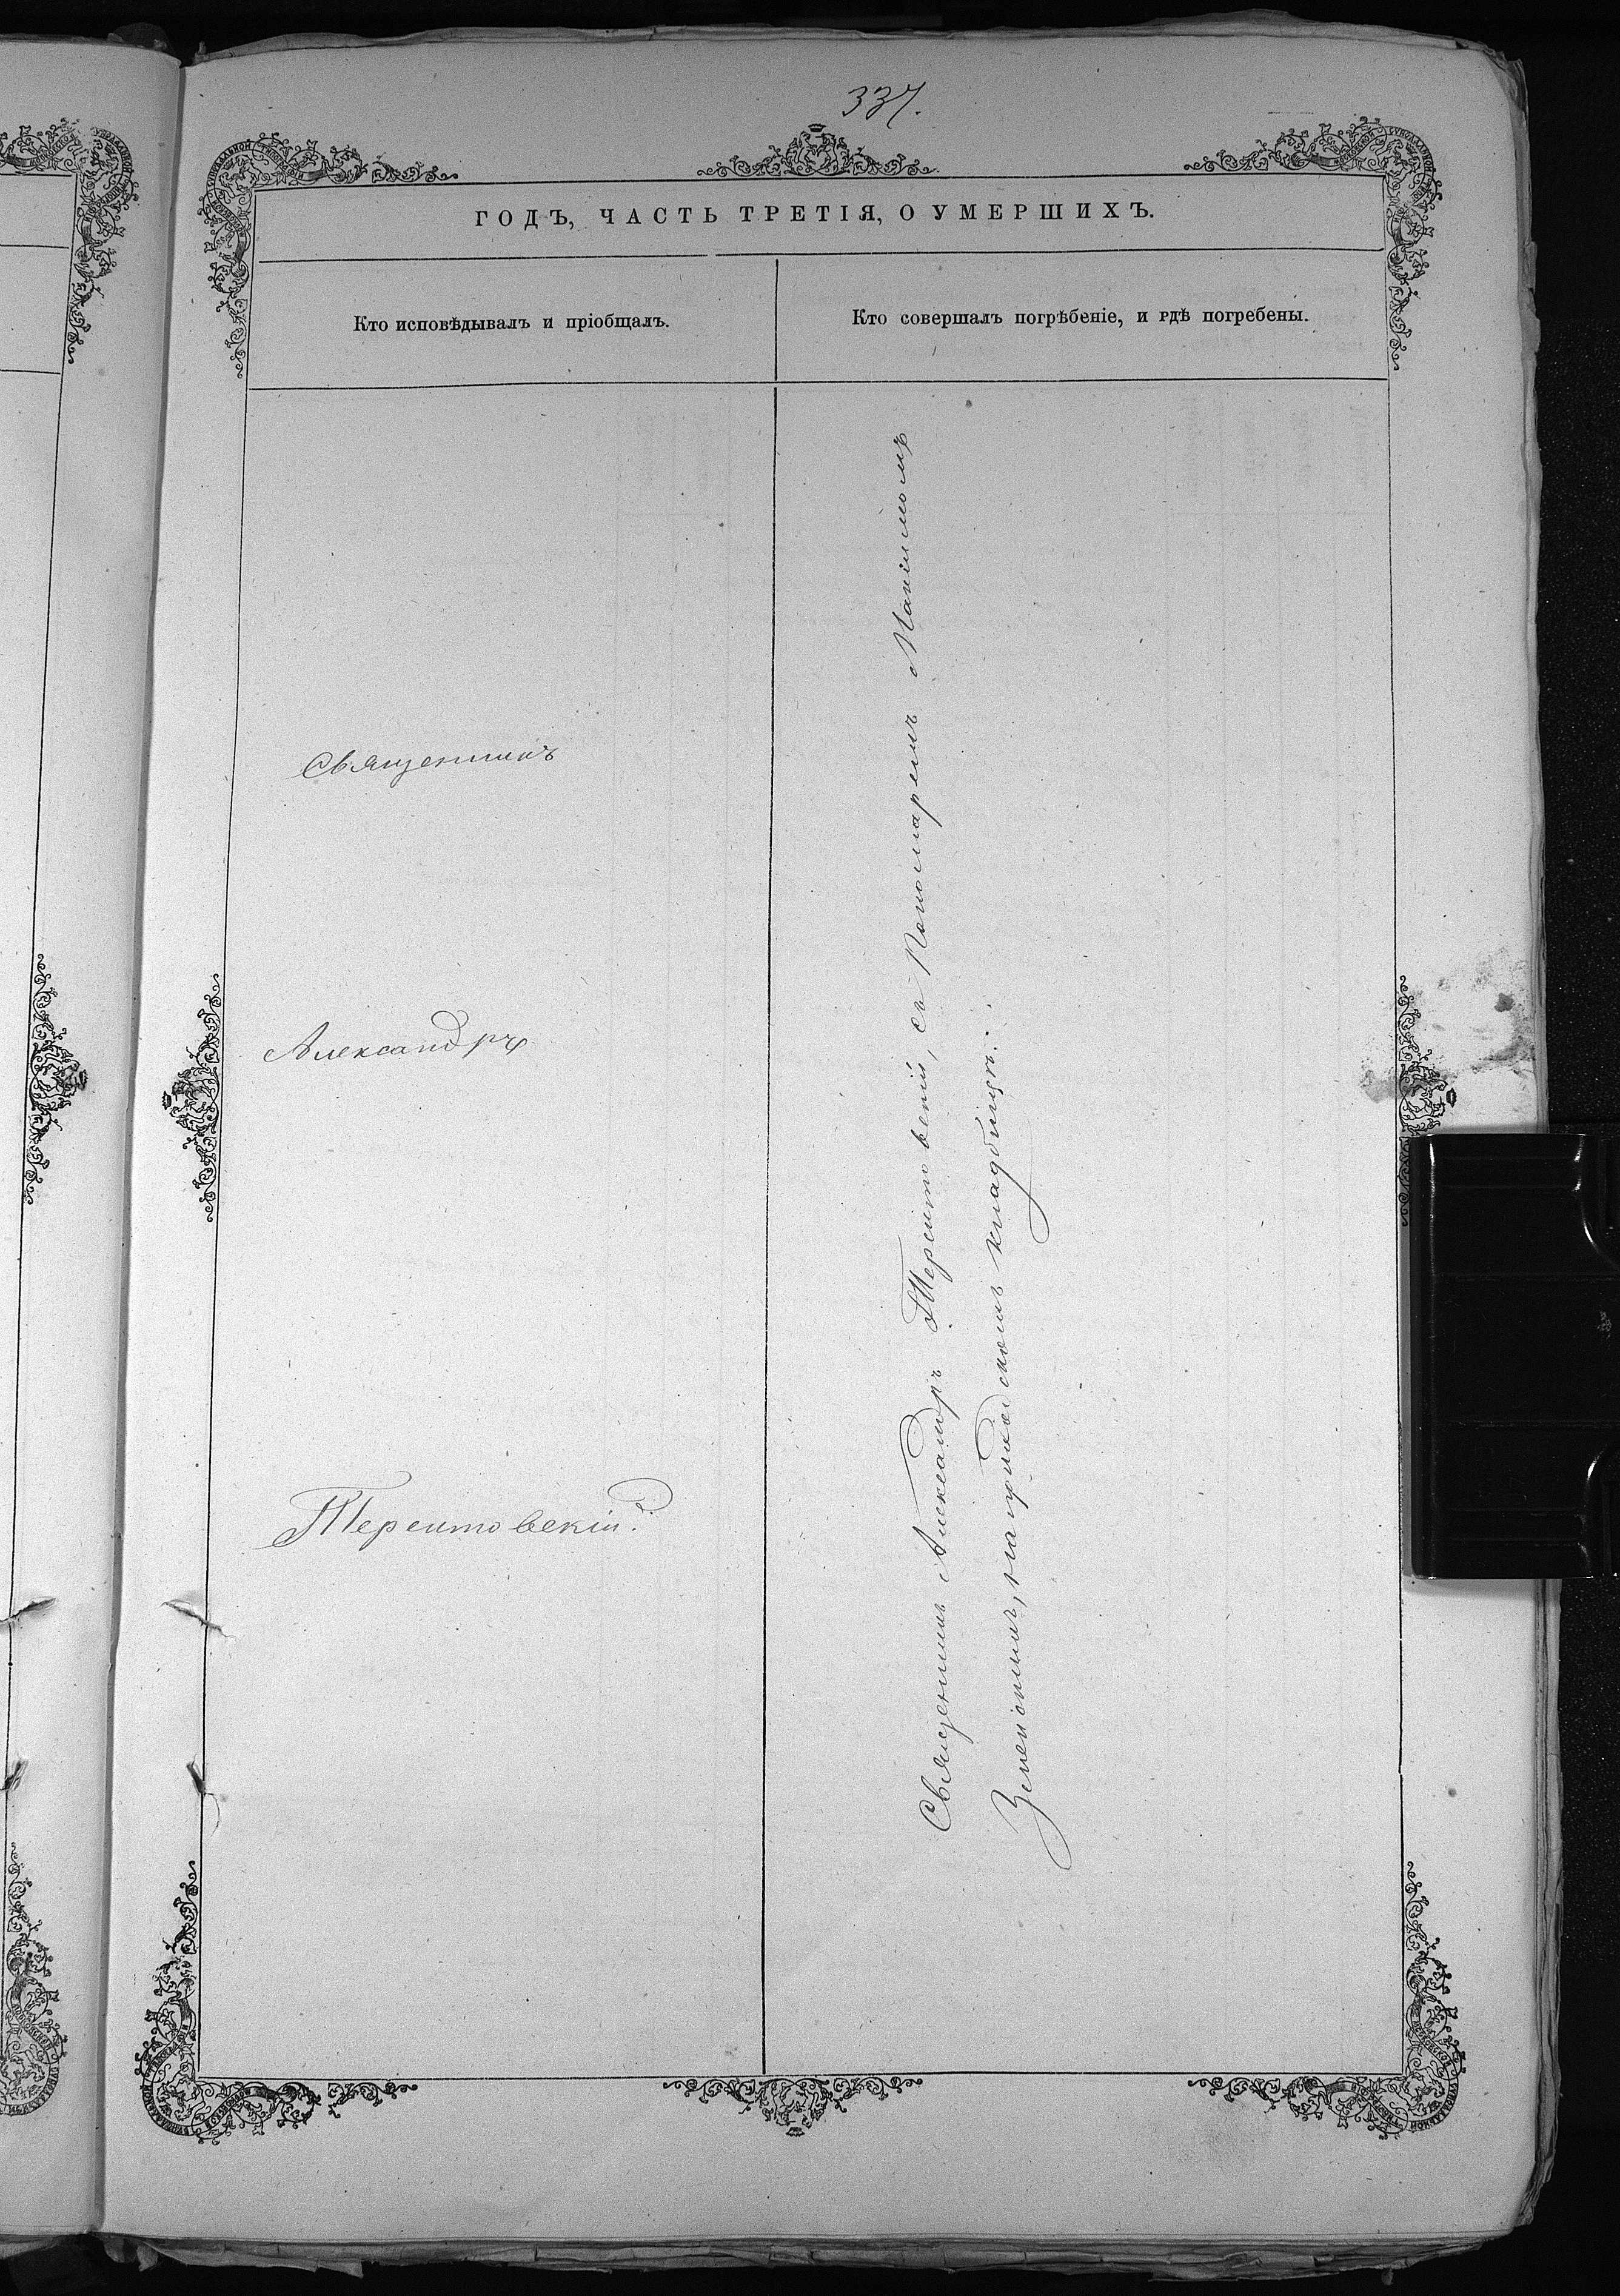 337.
ГОДЪ, ЧАСТЬ ТРЕТІЯ, О УМЕРШИХЪ.
Кто исповѣдывалъ и пріобщалъ.
Кто совершалъ погрѣбеніе, и гдѣ погребены.
Священникъ
Александръ
Терентовскій.
Священникъ Александръ Терентовскій, съ Пономаремъ Максимомъ
на приходскомъ кладбищѣ.